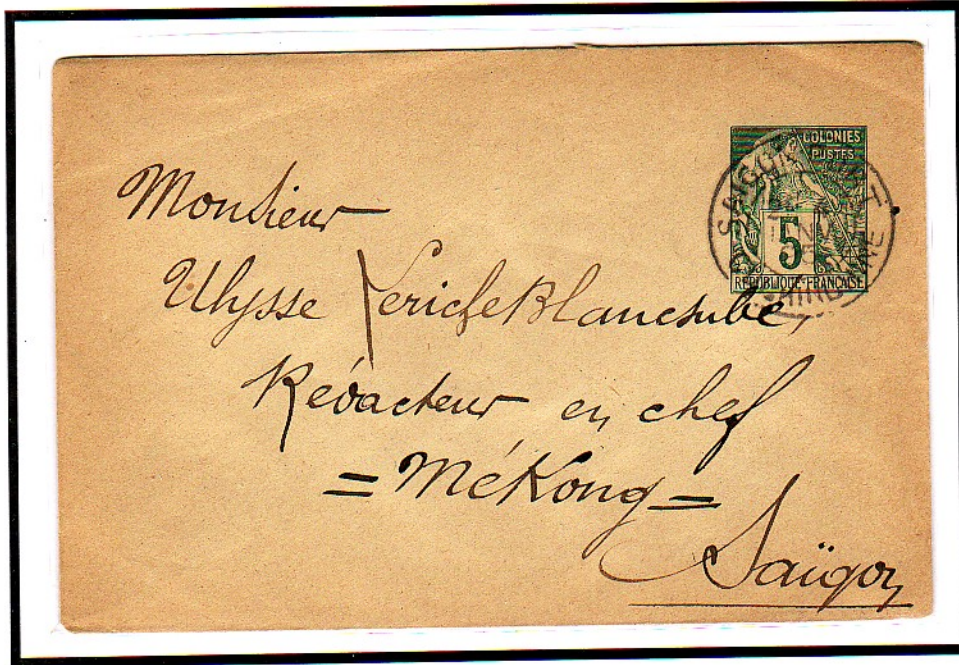 COLONIES
POSTES
5
RÉPUBLIQUE FRANÇAISE
SAIGON
Monsieur
Ulysse Leriche Blancsubé,
Rédacteur en chef
=MéKong=
Saïgon